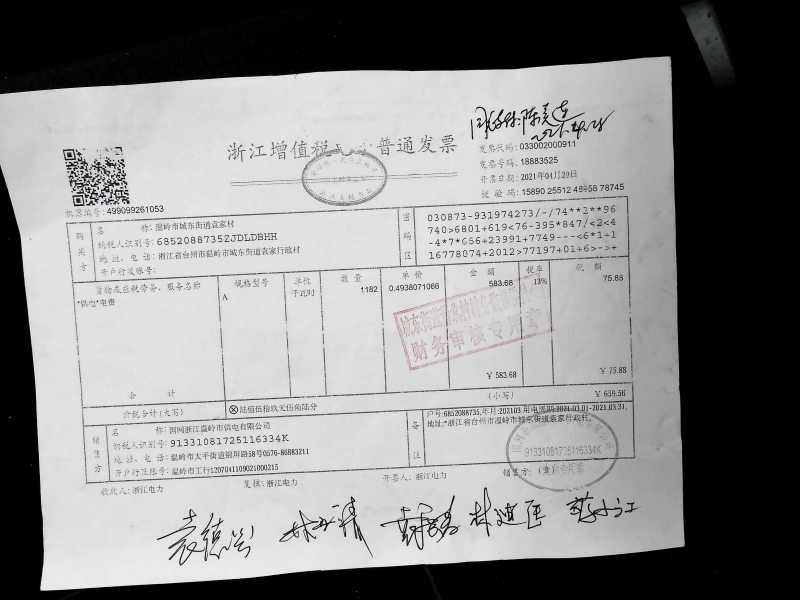 浙江增值税 普通发票
发票代码: 033002000911
发票号码: 18883525
开票日期: 2021年04月20日
校验码: 15890 25512 46958 78745
机器编号: 499099261053
购买方
名 称: 温岭市城东街道袁家村
纳税人识别号: 6852088735ZJDLDBHH
地 址、电 话: 浙江省台州市温岭市城东街道袁家行政村
开户行及账号:
密码区
030873-931974273/-/74**2**96
740>6801+619<76-395*847/<2<4
-4*7*656+23991+7749---<6*1+1
16778074+2012>77197+01+6>-+
货物或应税劳务、服务名称 规格型号 单位 数 量 单 价 金 额 税率 税 额
*供电*电费 A 千瓦时 1182 0.4938071066 583.68 13% 75.88
财务审核专用章
合 计 ￥583.68 ￥75.88
价税合计(大写) ⊗陆佰伍拾玖元伍角陆分 (小写) ￥659.56
销售方
名 称: 国网浙江温岭市供电有限公司
纳税人识别号: 91331081725116334K
地 址、电 话: 温岭市太平街道锦屏路58号0576-86883211
开户行及账号: 温岭市工行1207041109021000215
备注
户号:6852088735,年月:202103,用电周期:2021.03.01-2021.03.31,
地址:*浙江省台州市温岭市城东街道袁家行政村.
91331081725116334K
收款人: 浙江电力 复核: 浙江电力 开票人: 浙江电力 销售方: (章)